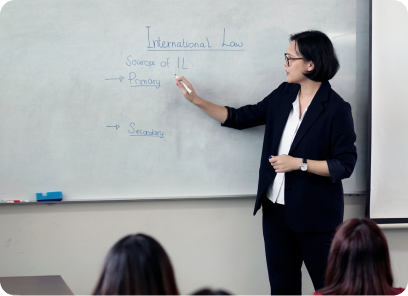 International Law
Sources of IL
→ Primary
→ Secondary